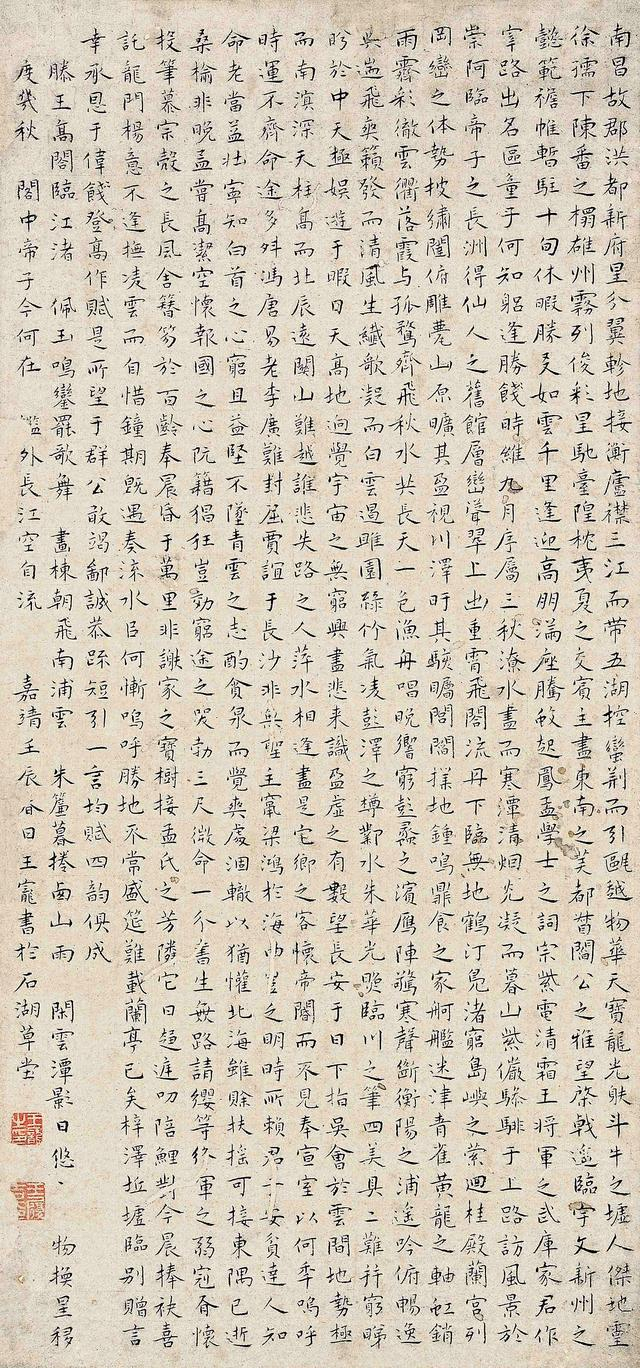 南昌故郡洪都新府星分翼軫地接衡廬襟三江而帶五湖控蠻荊而引甌越物華天寶龍光射斗牛之墟人傑地靈
徐孺下陳蕃之榻雄州霧列俊彩星馳臺隍枕夷夏之交賓主盡東南之美都督閻公之雅望棨戟遙臨宇文新州之
懿範襜帷暫駐十旬休暇勝友如雲千里逢迎高朋滿座騰蛟起鳳孟學士之詞宗紫電清霜王將軍之武庫家君作
宰路出名區童子何知躬逢勝餞時維九月序屬三秋潦水盡而寒潭清烟光凝而暮山紫儼驂騑于上路訪風景於
崇阿臨帝子之長洲得仙人之舊館層巒聳翠上出重霄飛閣流丹下臨無地鶴汀鳧渚窮島嶼之縈迴桂殿蘭宮列
岡巒之体勢披繡闥俯雕甍山原曠其盈視川澤盱其駭矚閭閻撲地鐘鳴鼎食之家舸艦迷津青雀黃龍之軸虹銷
雨霽彩徹雲衢落霞与孤鶩齊飛秋水共長天一色漁舟唱晚響窮彭蠡之濱鴈陣驚寒聲斷衡陽之浦遙吟俯暢逸
興遄飛爽籟發而清風生纖歌凝而白雲遏睢園綠竹氣凌彭澤之樽鄴水朱華光曖臨川之筆四美具二難并窮睇
眄於中天極娛遊于暇日天高地迥覺宇宙之無窮興盡悲來識盈虛之有數望長安于日下指吳會於雲間地勢極
而南溟深天柱高而北辰遠關山難越誰悲失路之人萍水相逢盡是它鄉之客懷帝閽而不見奉宣室以何年嗚呼
時運不齊命途多舛馮唐易老李廣難封屈賈誼于長沙非無聖主竄梁鴻於海曲豈乏明時所賴君子安貧達人知
命老當益壯寧知白首之心窮且益堅不墜青雲之志酌貪泉而覺爽處涸轍以猶懽北海雖賒扶搖可接東隅已逝
桑榆非晚孟嘗高潔空懷報國之心阮籍猖狂豈効窮途之哭勃三尺微命一介書生無路請纓等終軍之弱冠有懷
投筆慕宗愨之長風舍簪笏於百齡奉晨昏于萬里非謝家之寶樹接孟氏之芳隣它日趨庭叨陪鯉對今晨捧袂喜
託龍門楊意不逢撫凌雲而自惜鐘期既遇奏流水以何慚嗚呼勝地不常盛筵難載蘭亭已矣梓澤丘墟臨別贈言
幸承恩于偉餞登高作賦是所望于群公敢竭鄙誠恭疏短引一言均賦四韻俱成
滕王高閣臨江渚 佩玉鳴鑾罷歌舞 畫棟朝飛南浦雲 朱簾暮捲西山雨 閑雲潭影日悠〻 物換星移
度幾秋 閣中帝子今何在 檻外長江空自流 嘉靖壬辰春日王寵書於石湖草堂